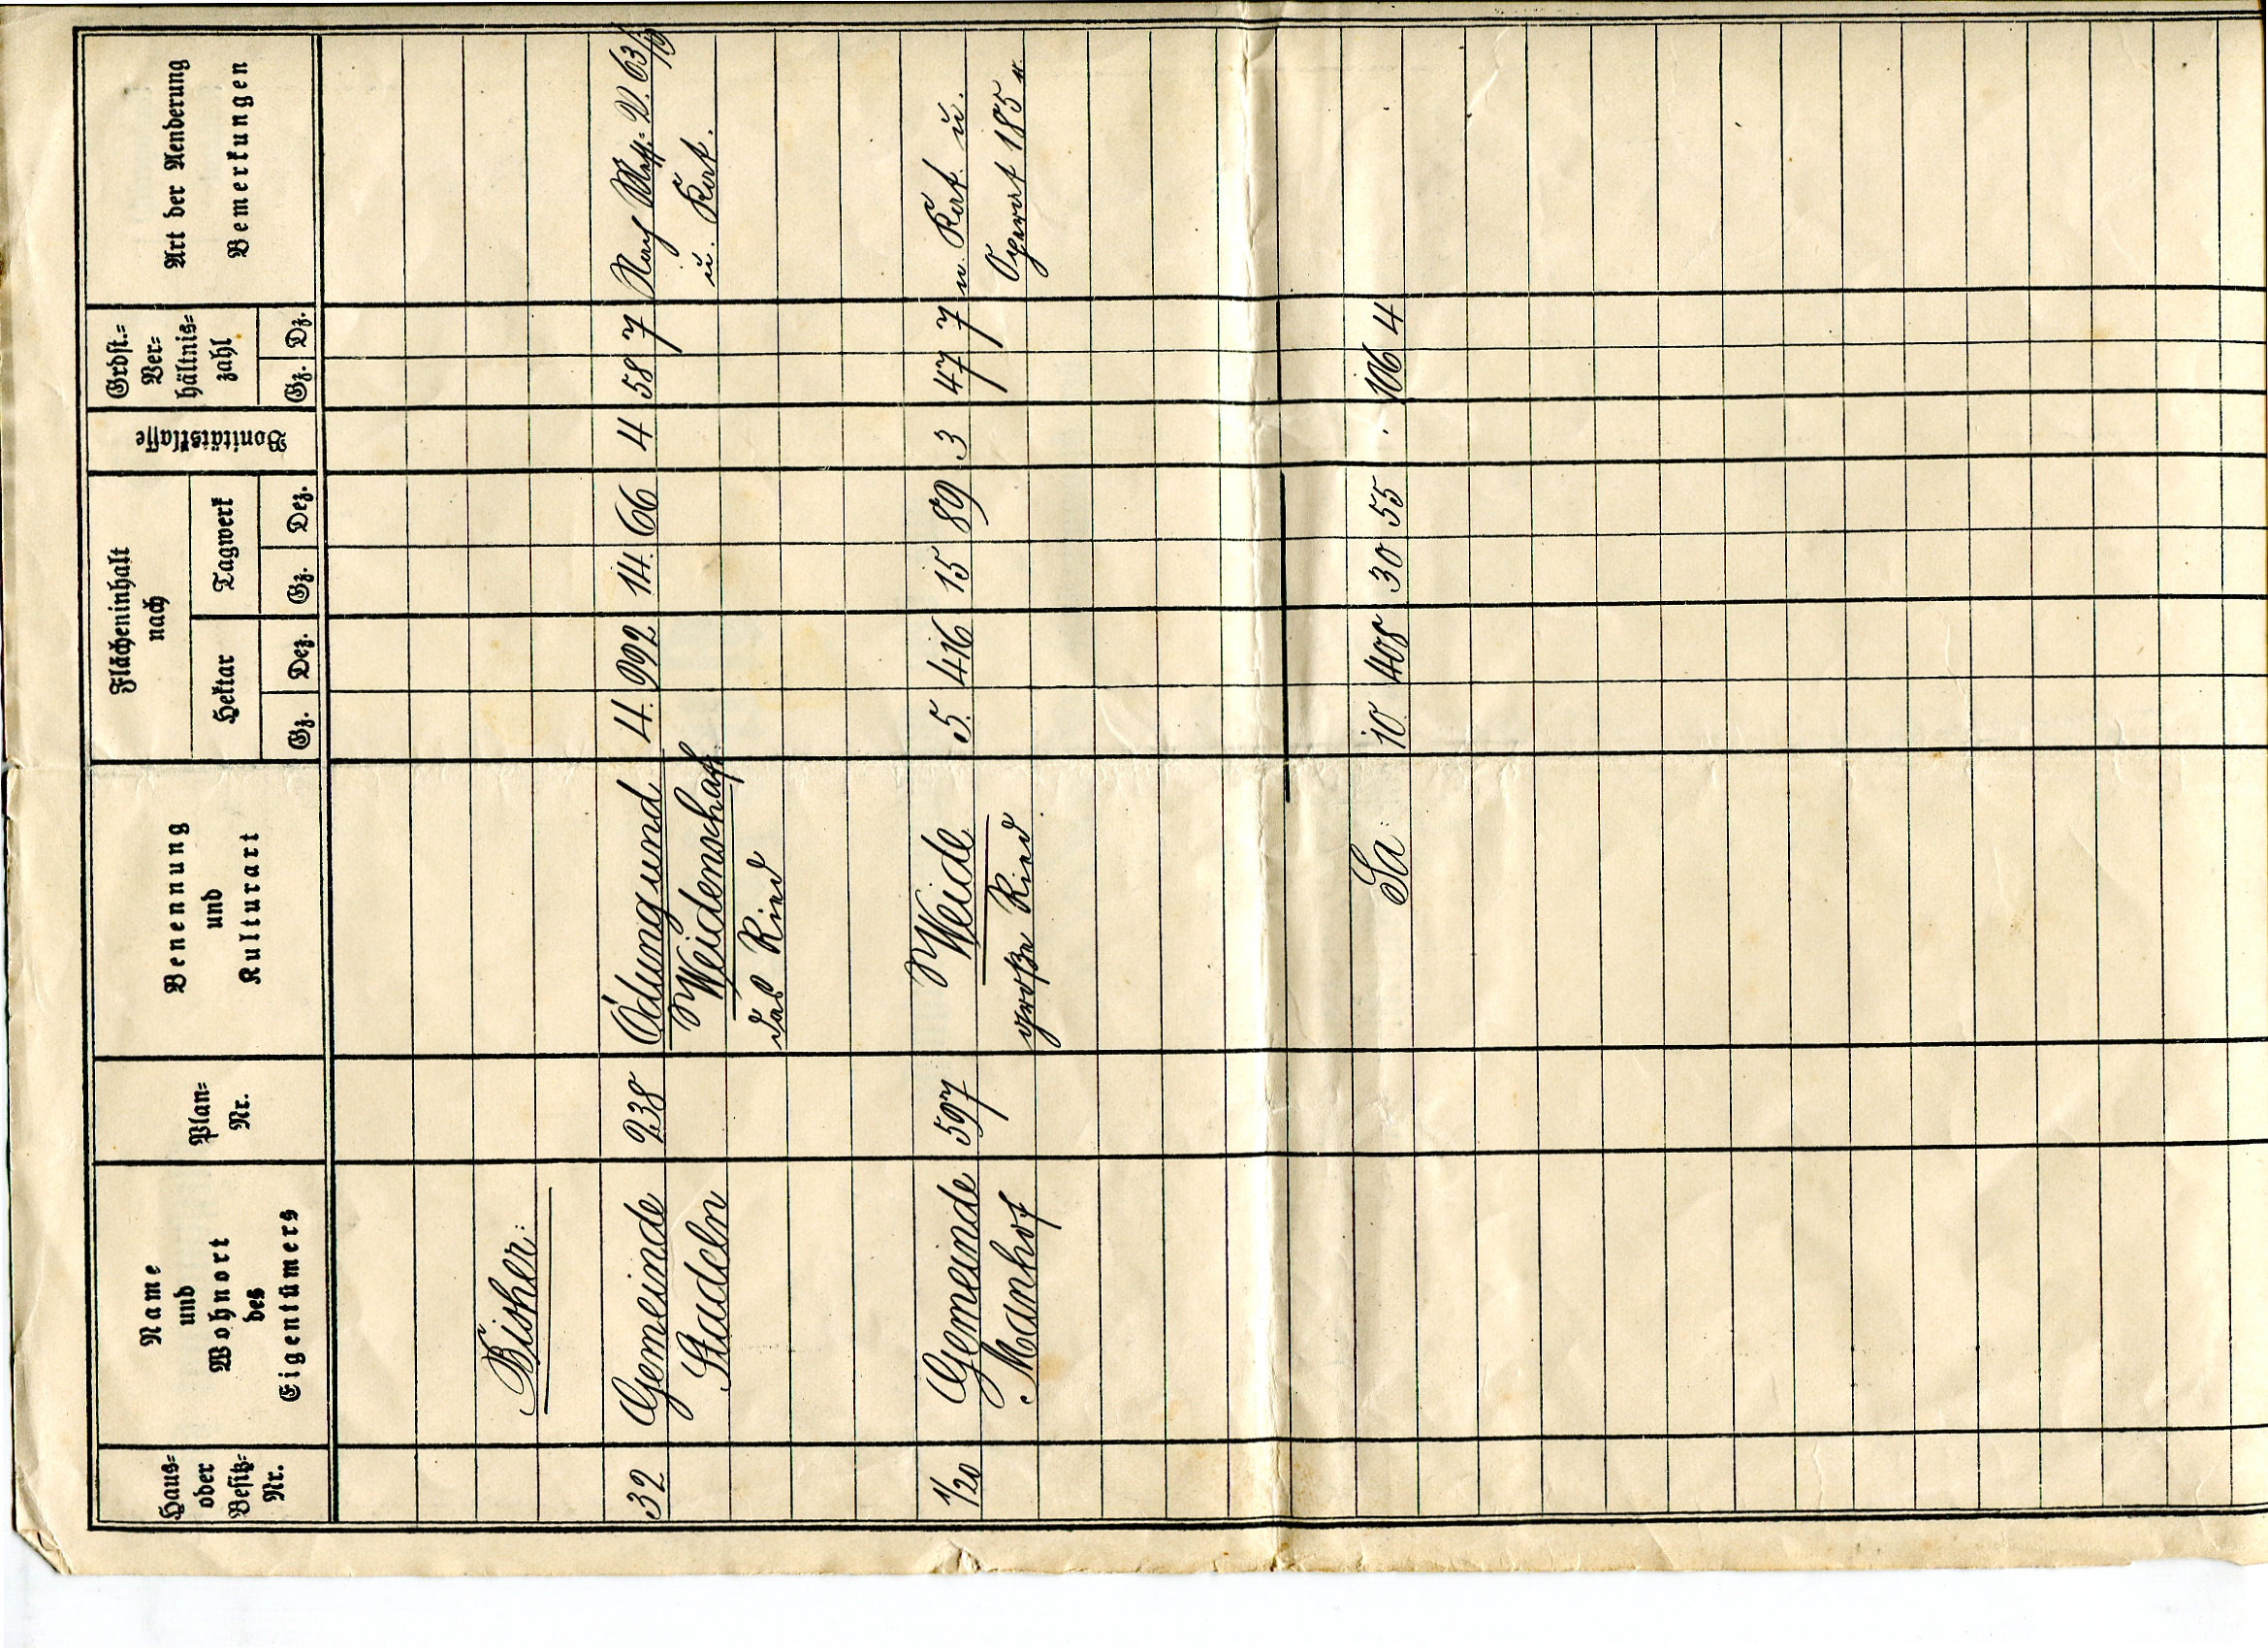 Haus=
oder
Besitz=
Nr.
Name
und
Wohnort
des
Eigentümers
Plan=
Nr.
Benennung
und
Kulturart
Flächeninhalt
nach
Hektar
Tagwerk
Gz. Dez. Gz. Dez.
Bonitätsklasse
Grdst.=
Ver=
hältnis=
zahl
Gz. Dz.
Art der Aenderung
Bemerkungen
Bisher:
32 Gemeinde 238 Ödung und 4. 992 14. 66 4 58 7 Nach
Stadeln Weidenschaft u. Kat.
das Ried
1/20 Gemeinde 597 Weide 5. 416 15 89 3 47 7 n. Kat. u.
Manhof große Ried
Sa: 10 408 30 55 . 106 4